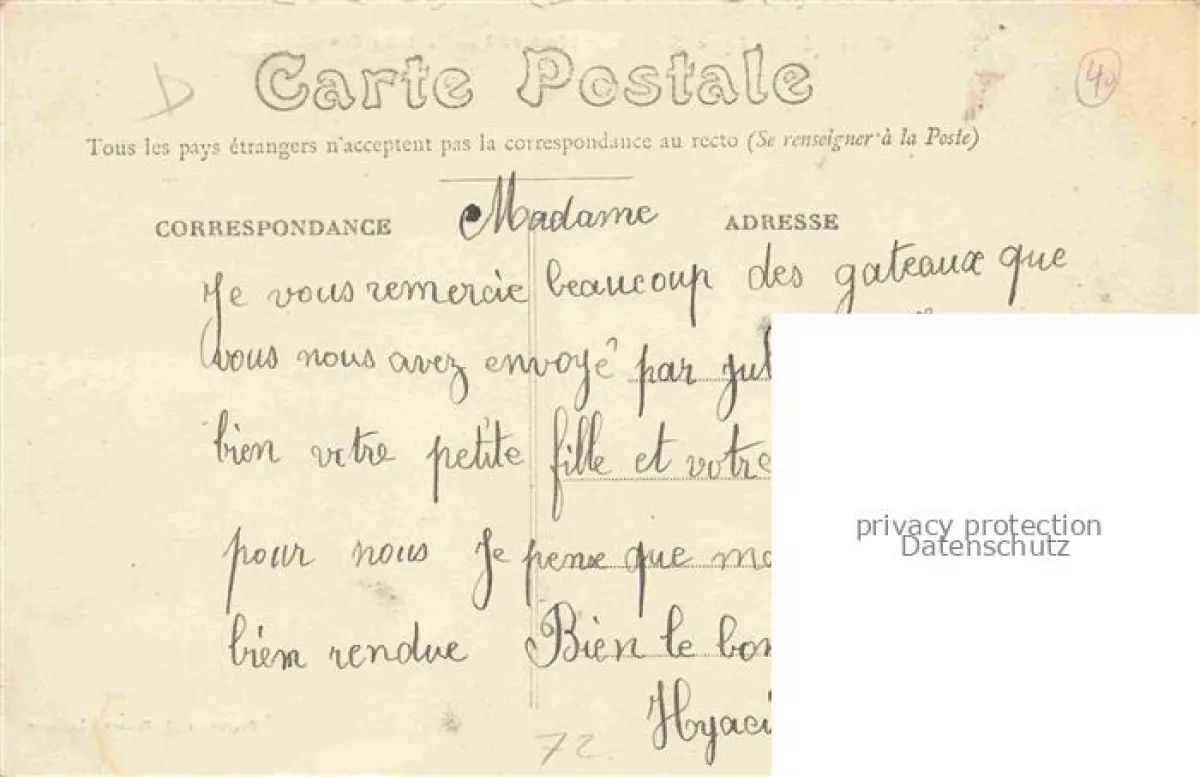 Carte Postale
40
Tous les pays étrangers n'acceptent pas la correspondance au recto (Se renseigner à la Poste)
CORRESPONDANCE
ADRESSE
Madame
Je vous remercie beaucoup des gateaux que
vous nous avez envoyé par
bien votre petite fille et votre
pour nous Je pense que
bien rendue Bien le
72.
privacy protection
Datenschutz